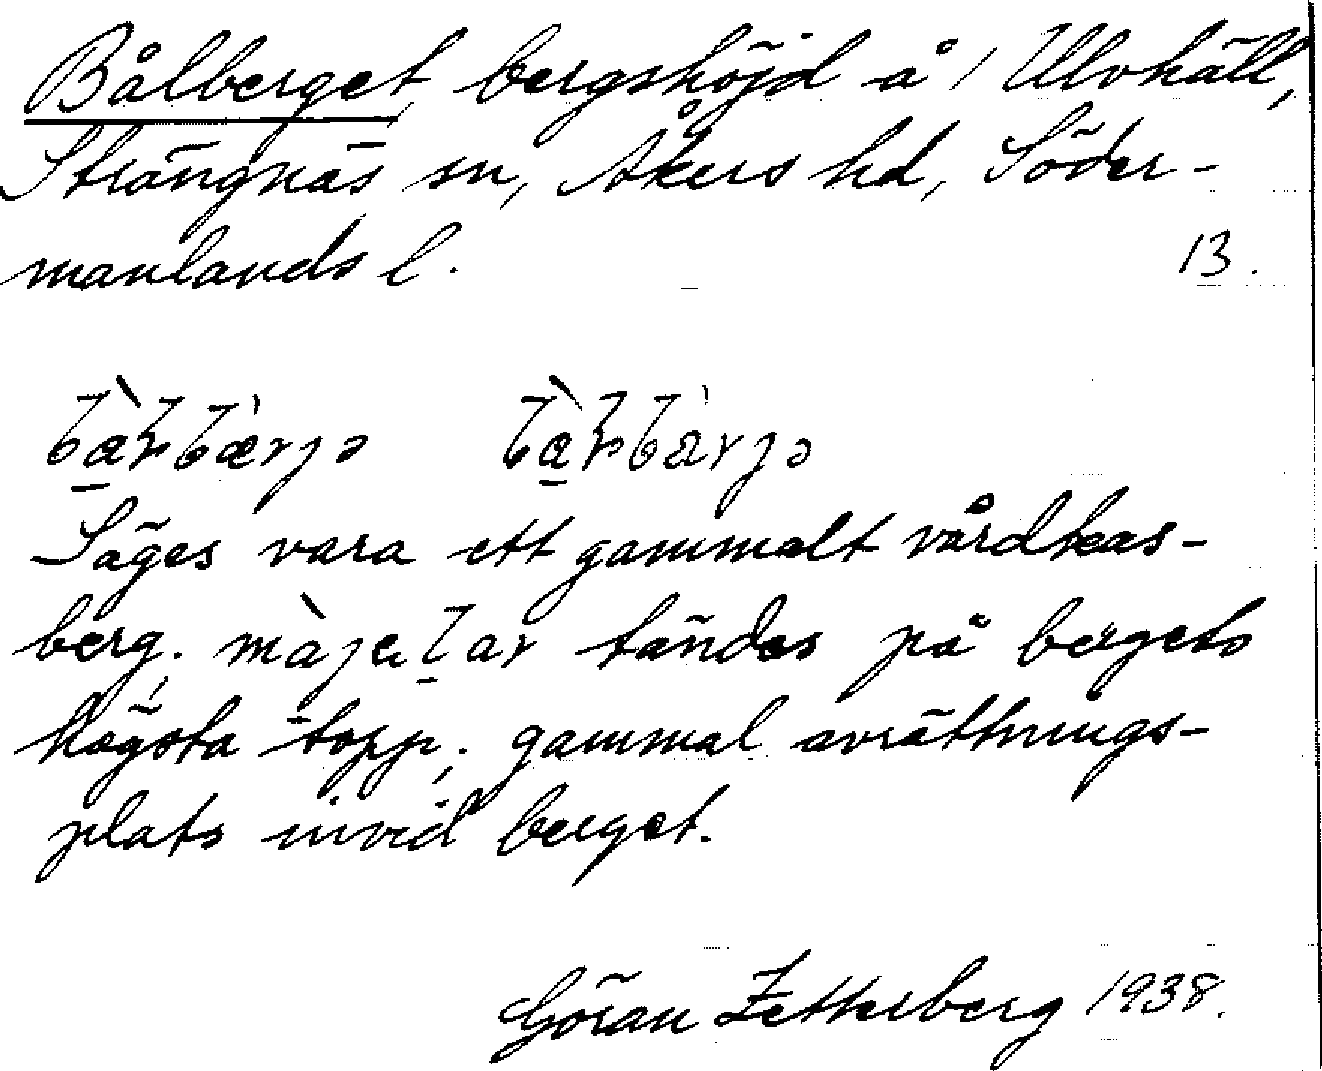 Bålberget, bergshöjd å / Ulvhäll,
Strängnäs sn, Åkers hd, Söder-
manlands l.
13.
Säges vara ett gammalt vårdkas-
berg. tändes på bergets
högsta topp; gammal avrättnings-
plats invid berget.
Göran Zetterberg 1938.